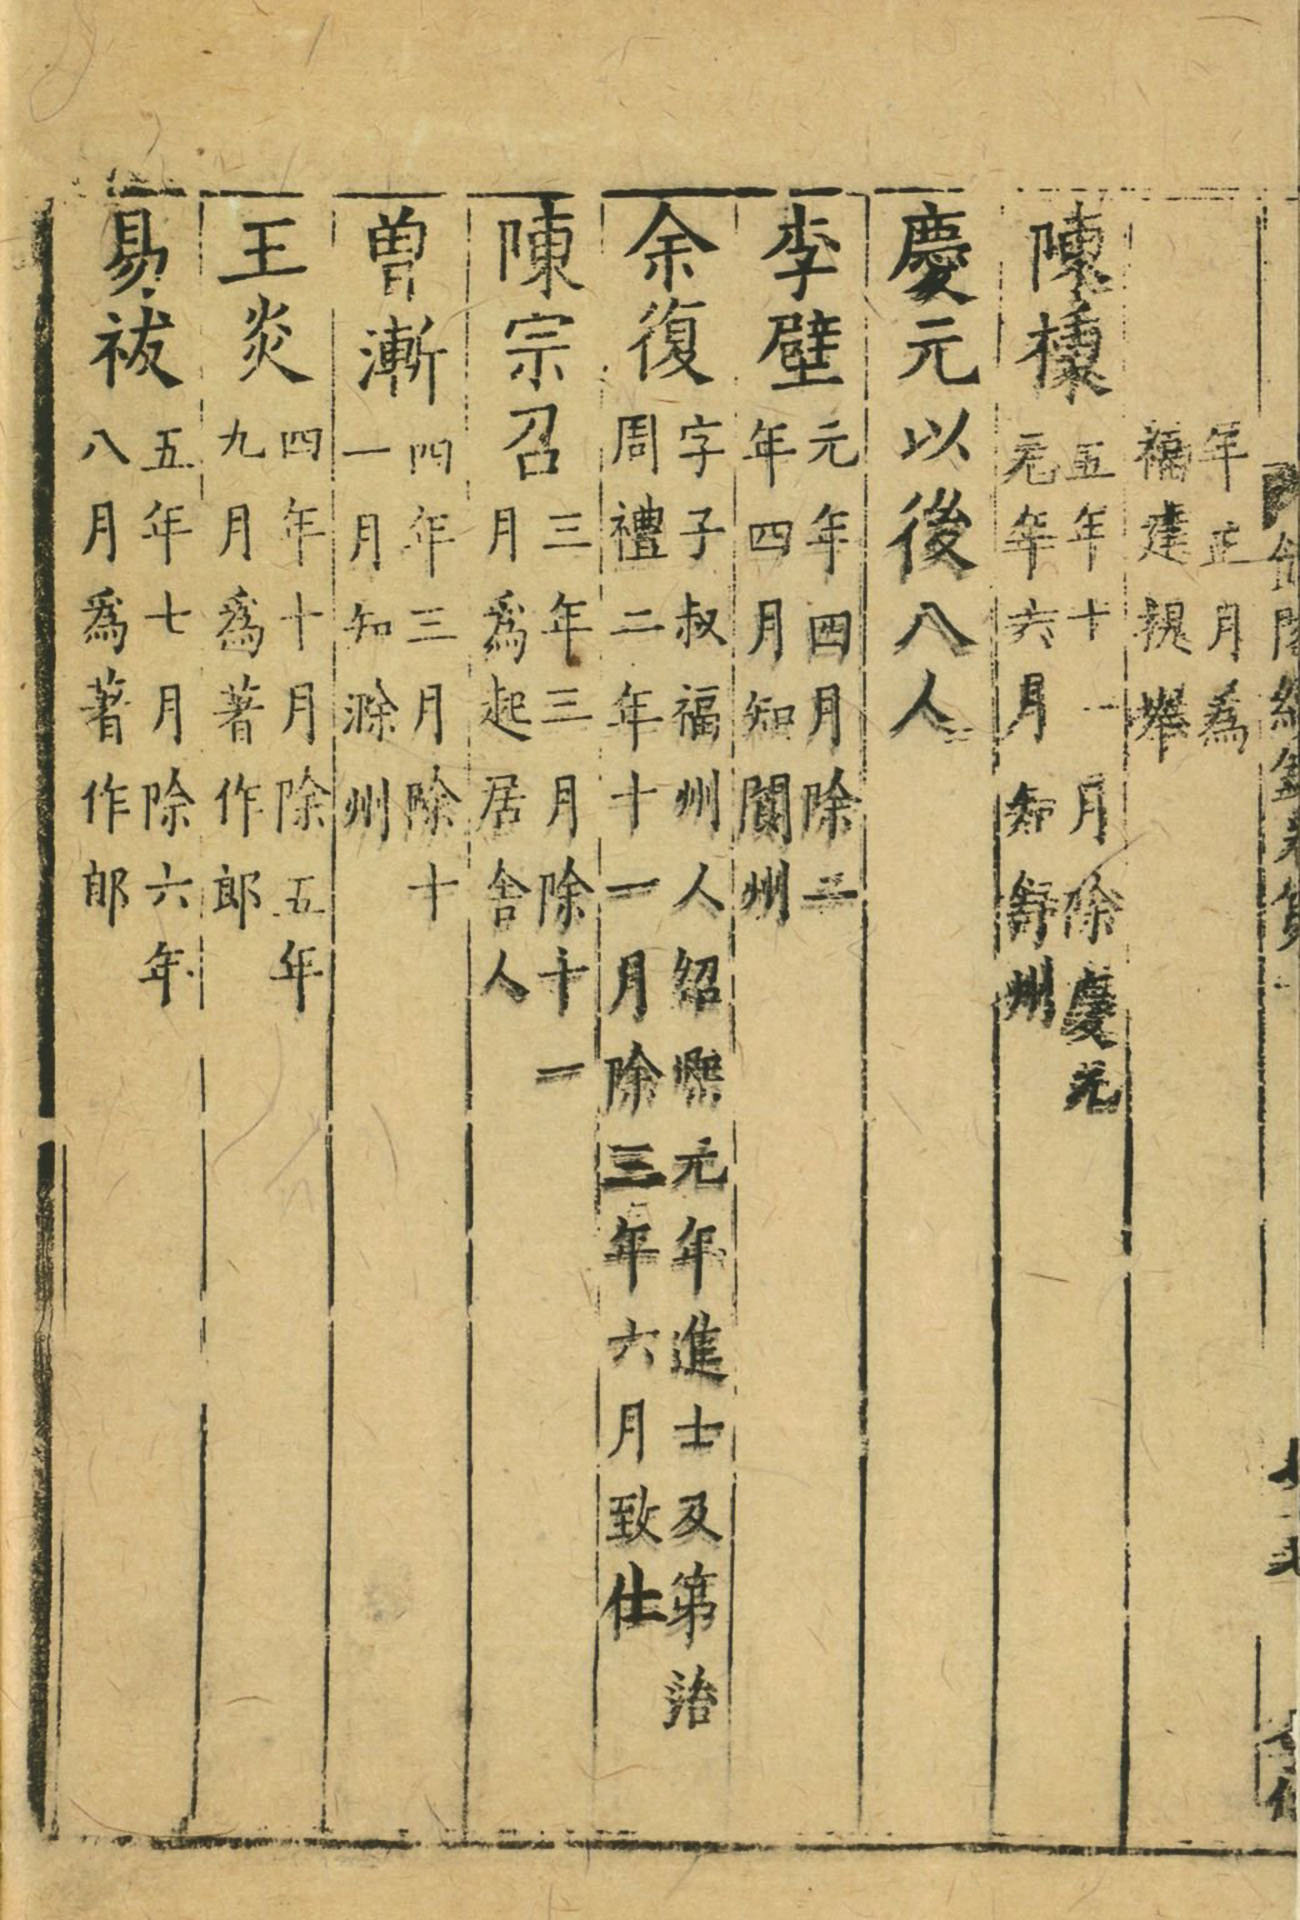 年正月爲
福建提舉
陳
五年十一月除慶元
元年六月知舒州
慶元以後八人
李壁
元年四月除二
年四月知閬州
余復
字子叔福州人紹熙元年進士及第治
周禮二年十一月除三年六月致仕
陳宗召
三年三月除十一
月爲起居舍人
曾漸
四年三月除十
一月知滁州
王炎
四年十月除五年
九月爲著作郎
易祓
五年七月除六年
八月爲著作郎